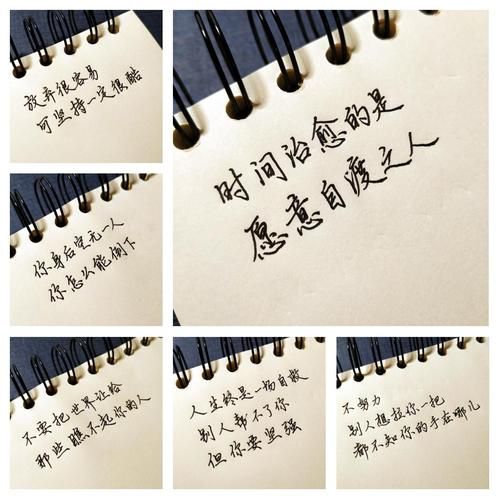 放弃很容易
可坚持一定很酷
时间治愈的是
愿意自渡之人
你身后空无一人
你怎么能倒下
不要把世界让给
那些瞧不起你的人
人生终是一场自救
别人帮不了你
但你要坚强
不努力
别人想拉你一把
都不知你的手在哪儿